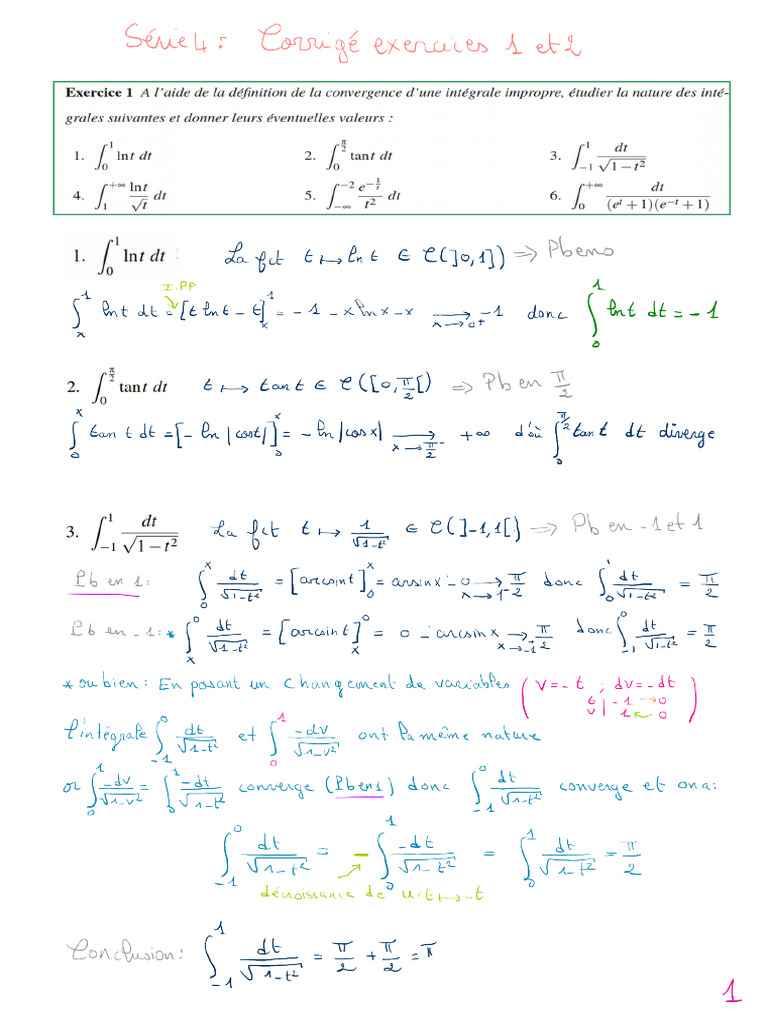 Série 4 : Corrigé exercices 1 et 2
Exercice 1 A l'aide de la définition de la convergence d'une intégrale impropre, étudier la nature des inté-
grales suivantes et donner leurs éventuelles valeurs :
1. ∫_0^1 ln t dt 2. ∫_0^{π/2} tan t dt 3. ∫_{-1}^1 dt/√(1−t²)
4. ∫_1^{+∞} ln t/√t dt 5. ∫_{-∞}^{-2} e^{-1/t}/t² dt 6. ∫_0^{+∞} dt/((e^t+1)(e^{-t}+1))
1. ∫_0^1 ln t dt : La fct t ↦ ln t ∈ C(]0,1]) ⇒ Pb en 0
I.PP
∫_x^1 ln t dt = [t ln t − t]_x^1 = −1 − x ln x − x → −1 (x→0+) donc ∫_0^1 ln t dt = −1
2. ∫_0^{π/2} tan t dt t ↦ tan t ∈ C([0,π/2[) ⇒ Pb en π/2
∫_0^x tan t dt = [−ln|cos t|]_0^x = −ln|cos x| → +∞ (x→π/2−) d'où ∫_0^{π/2} tan t dt diverge
3. ∫_{-1}^1 dt/√(1−t²) La fct t ↦ 1/√(1−t²) ∈ C(]-1,1[) ⇒ Pb en -1 et 1
Pb en 1: ∫_0^x dt/√(1−t²) = [arcsin t]_0^x = arcsin x − 0 → π/2 (x→1−) donc ∫_0^1 dt/√(1−t²) = π/2
Pb en -1: * ∫_x^0 dt/√(1−t²) = [arcsin t]_x^0 = 0 − arcsin x → π/2 (x→-1+) donc ∫_{-1}^0 dt/√(1−t²) = π/2
* ou bien : En posant un changement de variables (v = −t ; dv = −dt
t | -1 → 0
v | 1 ← 0)
l'intégrale ∫_{-1}^0 dt/√(1−t²) et ∫_0^1 −dv/√(1−v²) ont la même nature
or ∫_0^1 −dv/√(1−v²) = ∫_0^1 −dt/√(1−t²) converge (Pb en 1) donc ∫_{-1}^0 dt/√(1−t²) converge et on a:
∫_{-1}^0 dt/√(1−t²) = − ∫_0^1 −dt/√(1−t²) = ∫_0^1 dt/√(1−t²) = π/2
décroissance de u: t ↦ -t
Conclusion: ∫_{-1}^1 dt/√(1−t²) = π/2 + π/2 = π
1